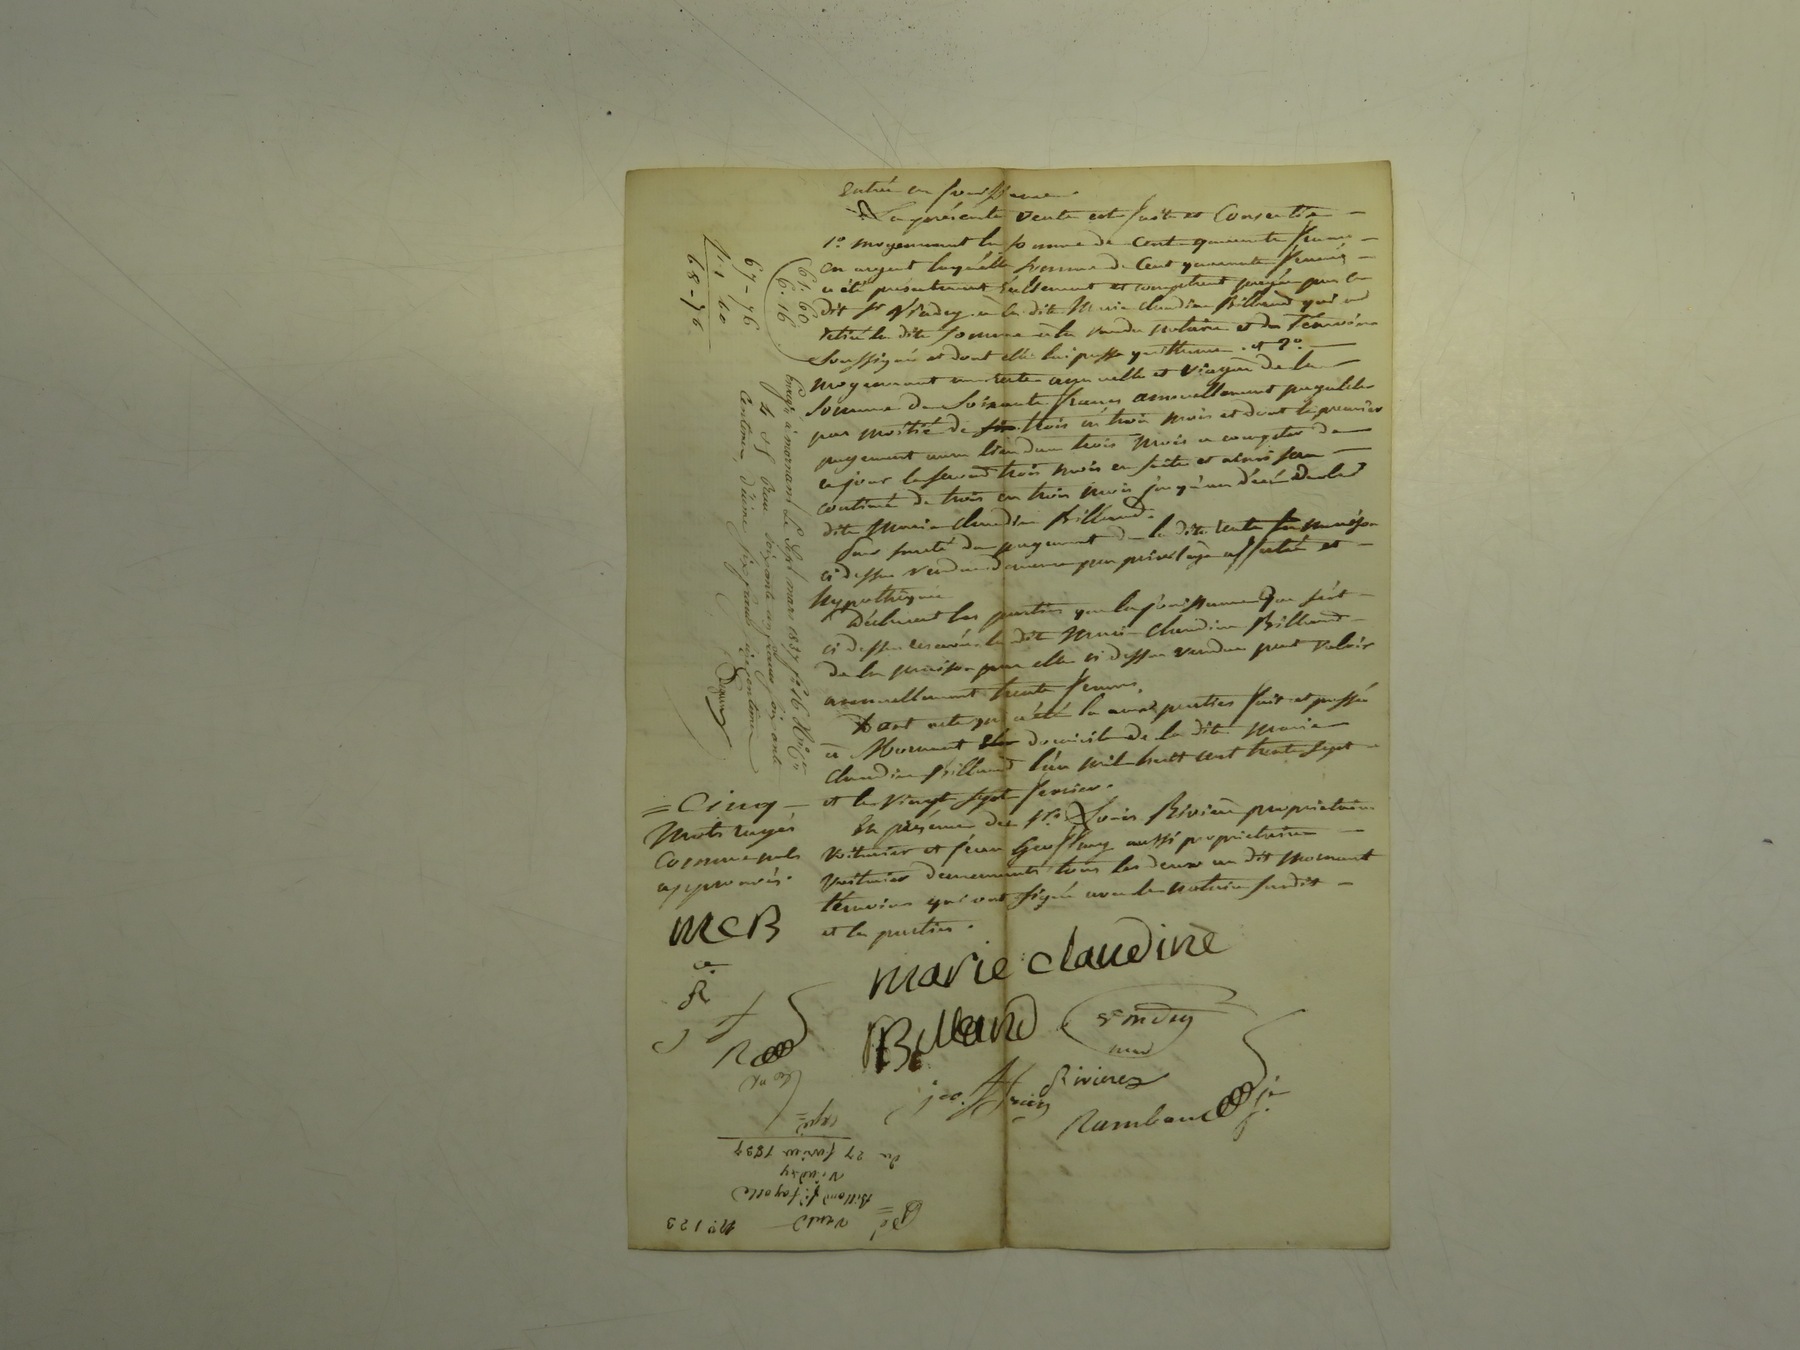 Entrée en jouissance.
La présente vente est faite et Consentie
1.º moyennant la somme de Cent quarante francs
en argent laquelle somme de Cent quarante francs
a été présentement réellement et comptant payée par le
dit Sr Vindry à la dite Marie Claudine Billand qui a
retiré la dite somme à la vue du notaire et des témoins
soussignés et dont elle lui passe quittance. et 2.º
moyennant une rente annuelle et viagère de la
somme de soixante francs annuellement payable
par moitié de trois en trois mois et dont le premier
payement aura lieu dans trois mois a compter de
ce jour le second trois mois en suite et ainsi sera
continué de trois en trois mois jusqu'au décès de la
dite Marie Claudine Billand.
Pour sureté du payement de la dite rente la maison
ci dessus vendue demeure par privilège affectée et
hypothéquée
Déclarent les parties que la jouissance que s'est
ci dessus réservée la dite Marie Claudine Billand
de la maison par elle ci dessus vendue peut valoir
annuellement trente francs.
Dont acte qui a été lu aux parties fait et passé
à Mornant domicile de la dite Marie
Claudine Billand l'an mil huit cent trente sept
et le vingt sept février.
En présence des Srs Louis Rivière propriétaire
voiturier et jean Geoffray aussi propriétaire
voiturier demeurants tous les deux au dit Mornant
témoins qui ont signé avec le notaire susdit
et les parties.
= Cinq
Mots rayés
comme nuls
approuvés.
MCB
R
marie claudine
Billand
Vindry
geoffray
Riviere
Rambaud
61. 60
6. 16
67 - 76
1 60
68 - 76
Enregé à mornant Le Sept mars 1837 fº 16
Reçu soixante un francs soixante
centimes, décime six francs seize centimes
Nº 123
Vente
Billand fe fayolle
Vindry
du 27 fevrier 1837
Expé =